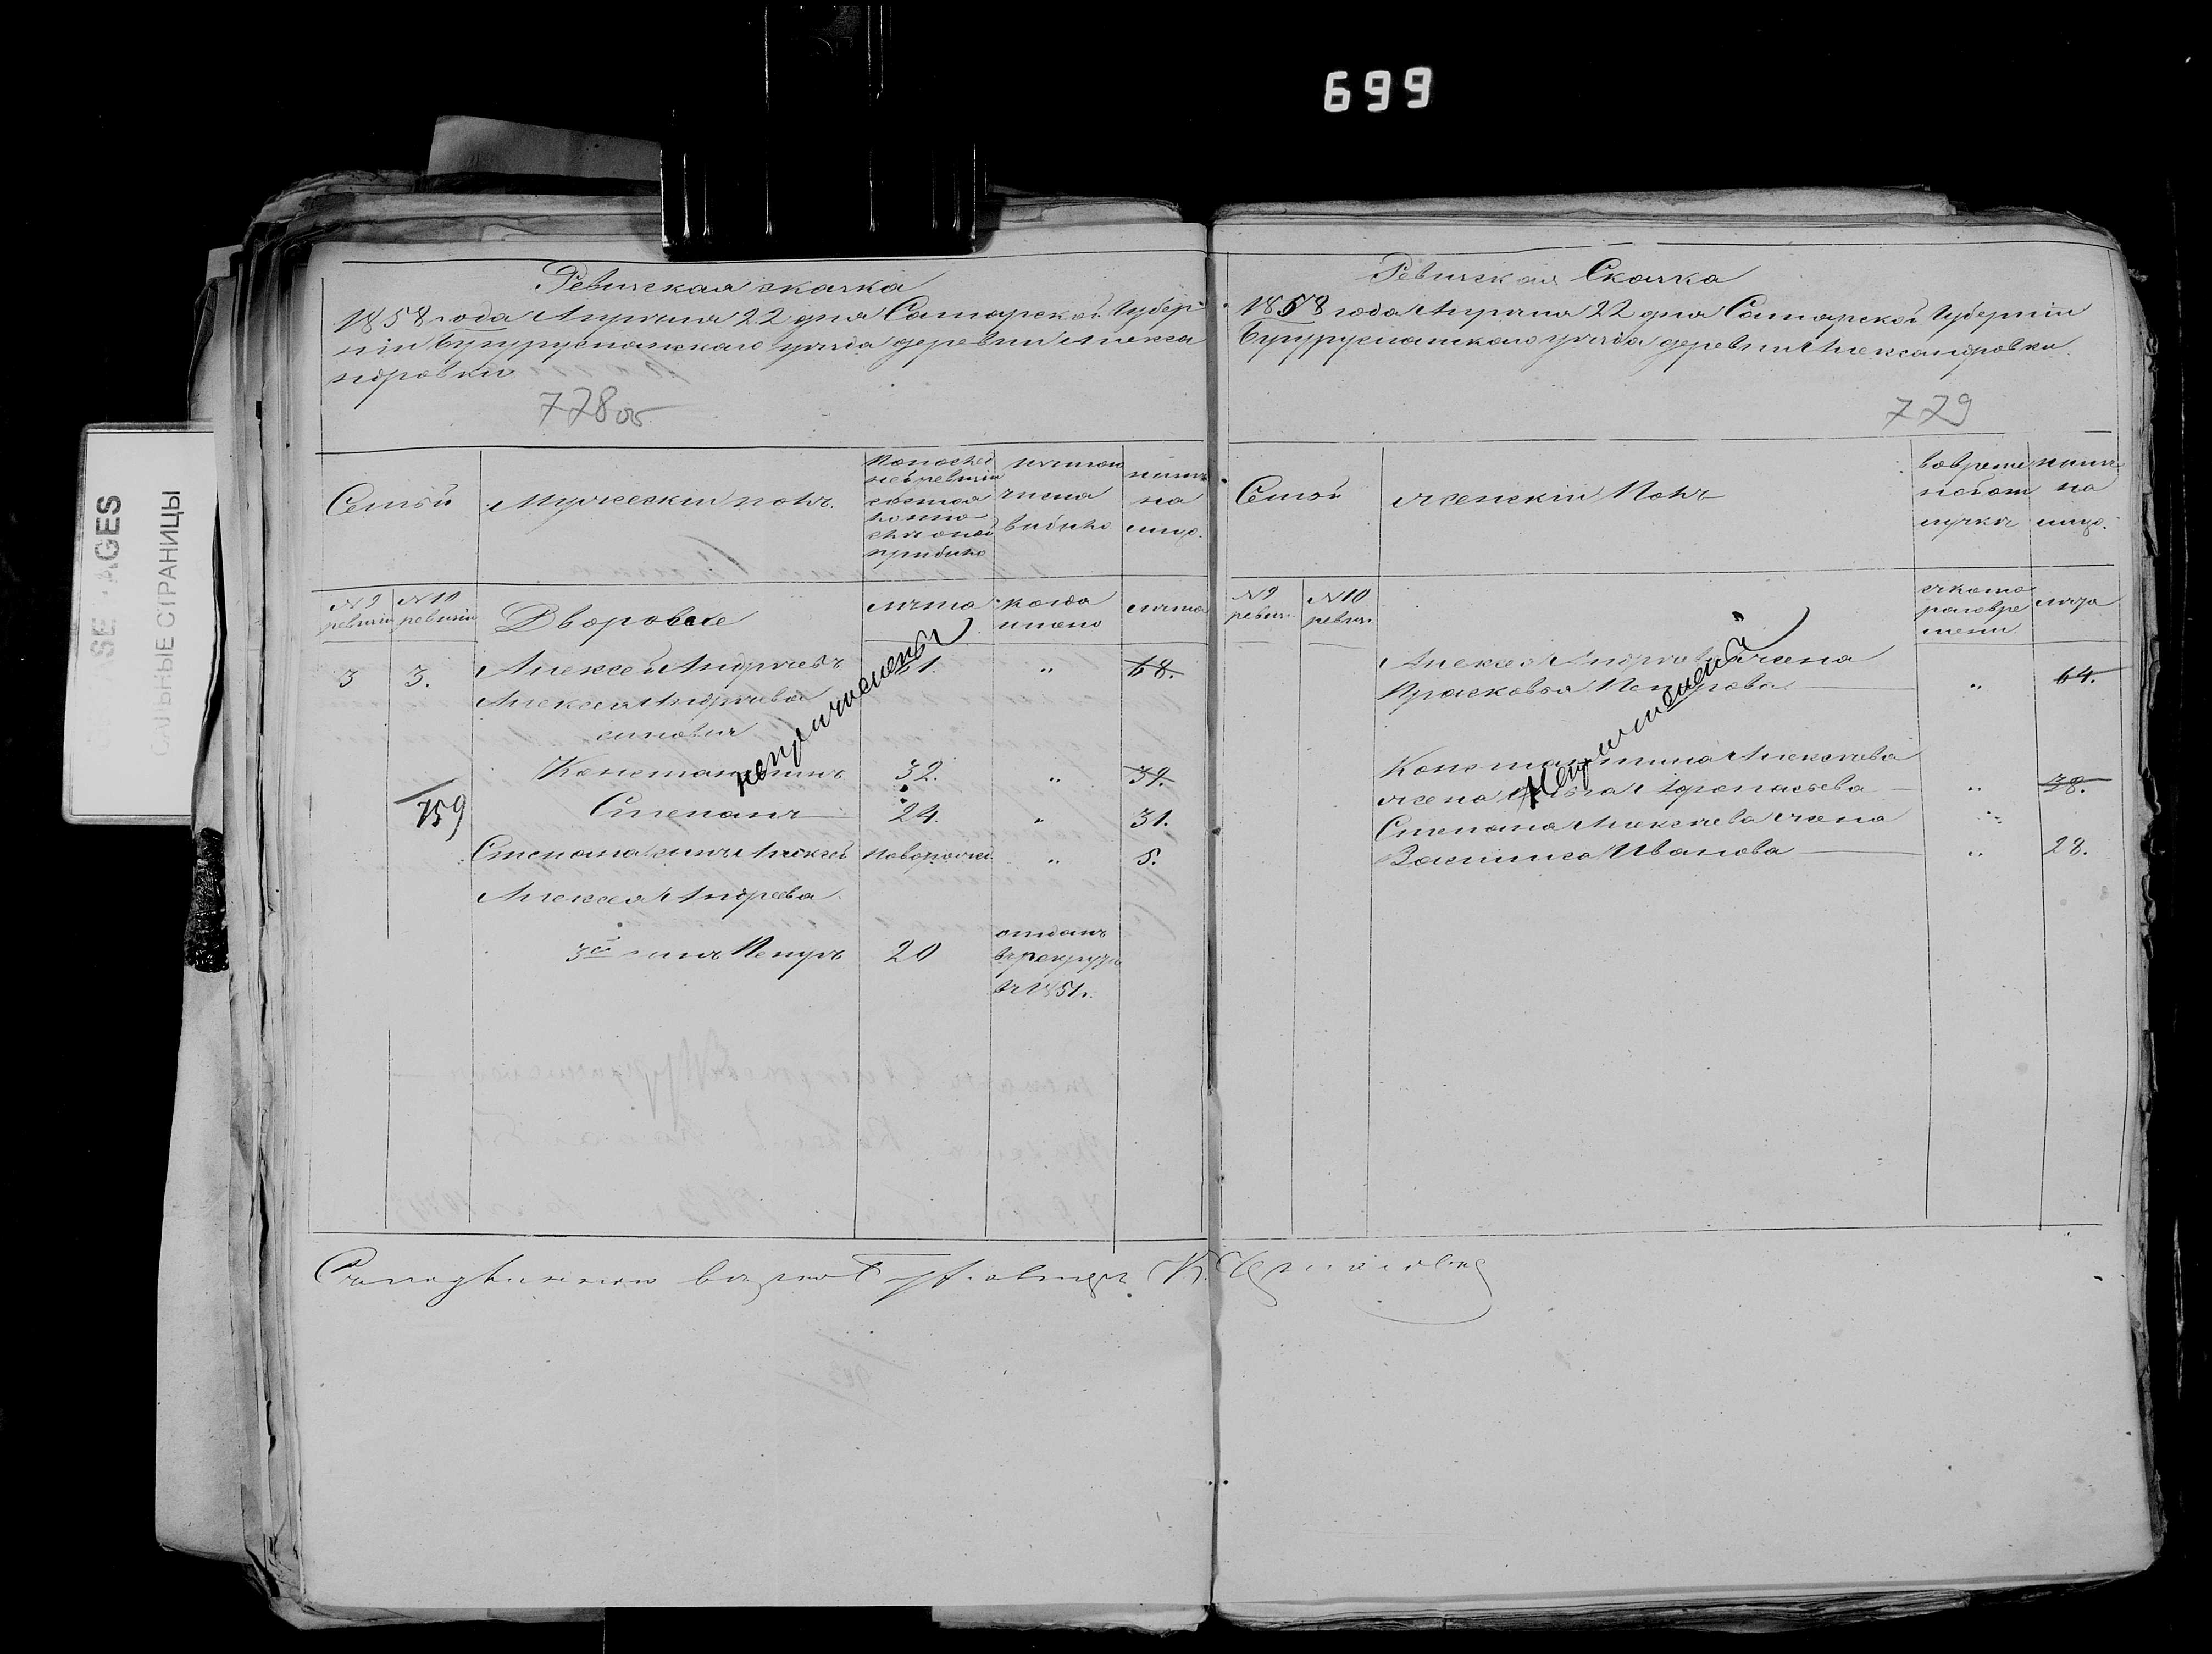 699
SE AGES
СЛЬНЫЕ СТРАНИЦЫ
Ревизская скаска
1858 года Апрѣля 22 дня Самарской Губер
ніи Бугурусланскаго уѣзда деревни Алекса
ндровки
778 об
Семьи
Мужескій полъ.
По послед
ней ревизіи
состоя
ло и по
слѣ оной
прибыло
изъ того
числа
выбыло
нынѣ
на
лицо.
№ 9 ревизіи
№ 10 ревизіи
Дворовые
лѣта
когда
имено
лѣта
3 3. Алексей Андрѣевъ 61. " 68.
Алексея Андрѣева
сыновья
непричислены
Константинъ 32. " 39.
759
Степанъ 24. " 31.
Степана сынъ Алексей новорожден. " 5.
Алексея Андреева
3й сынъ Петръ 20 отданъ
в рекруты
въ 1851.
Ревизская Скаска
1858 года Апрѣля 22 дня Самарской Губерніи
Бугурусланскаго уѣзда деревни Александровки
779
Семьи
женскій Полъ
во време
нной от
лучкѣ
нынѣ
на
лицо.
№ 9 ревиз.
№ 10 ревиз.
съ кото
раго вре
мени
лѣта
Алексея Андрѣева жена
Прасковья Петрова " 64.
непричислены
Константина Алексѣева
жена Афонасьева " 38.
Степана Алексѣева жена
Василиса Иванова " 28.